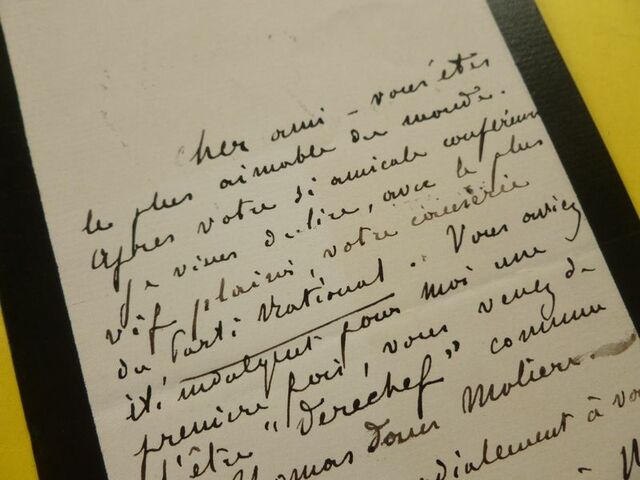 Cher ami – vous êtes
le plus aimable du monde.
Après votre si amicale conférence
je viens de lire, avec le plus
vif plaisir, votre causerie
du Parti National. Vous aviez
été indulgent pour moi une
première fois, vous venez de
l'être "derechef" comme
Thomas dans Molière.
cordialement à vo